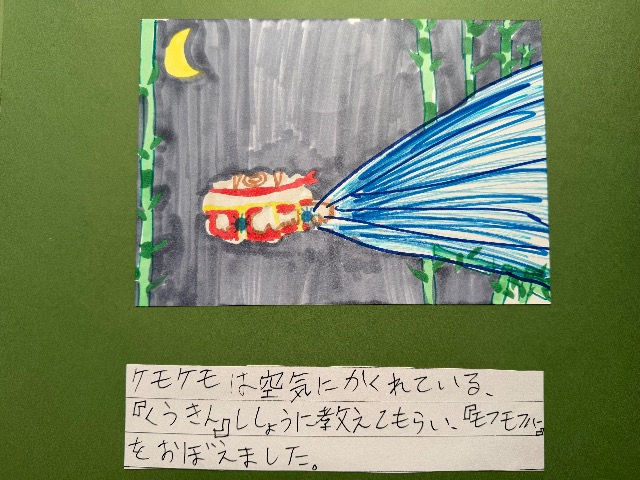 ケモケモは空気にかくれている、
『くうきん』ししょうに教えてもらい、『モフモフハ』
をおぼえました。